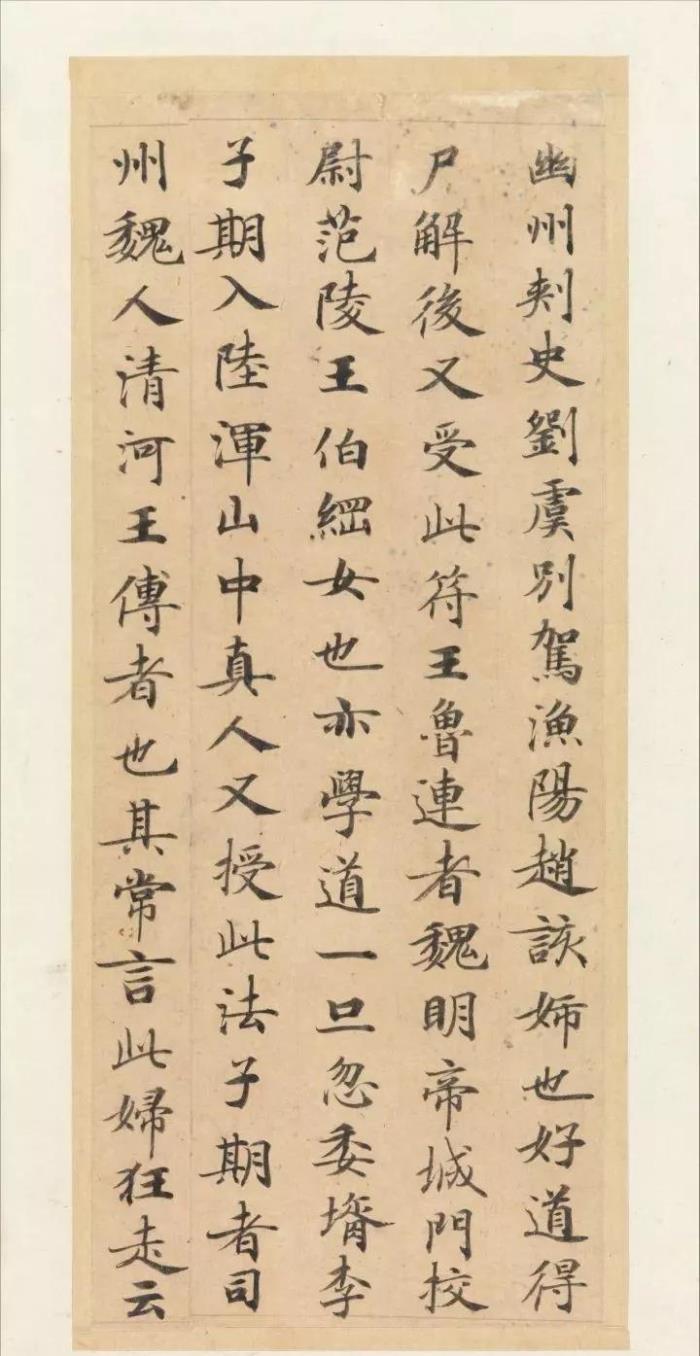 幽州刾史劉虞別駕漁陽趙該姉也好道得
尸解後又受此符王魯連者魏明帝城門挍
尉范陵王伯綑女也亦學道一旦忽委壻李
子期入陸渾山中真人又授此法子期者司
州魏人清河王傅者也其常言此婦狂走云